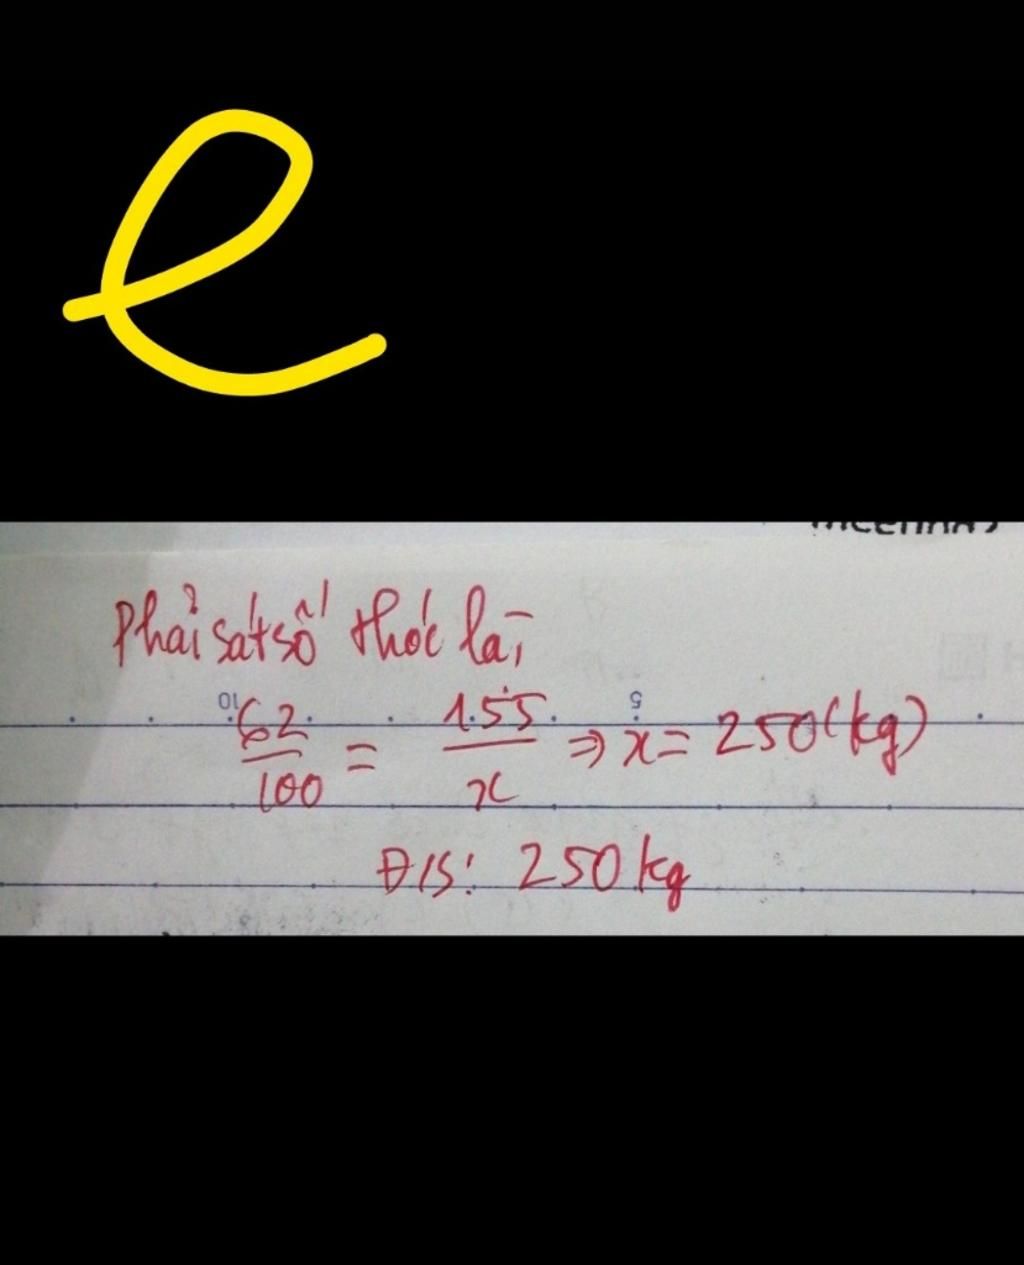 e
Phải sát số thóc là;
62/100 = 155/x => x = 250 (kg)
Đ/S: 250 kg